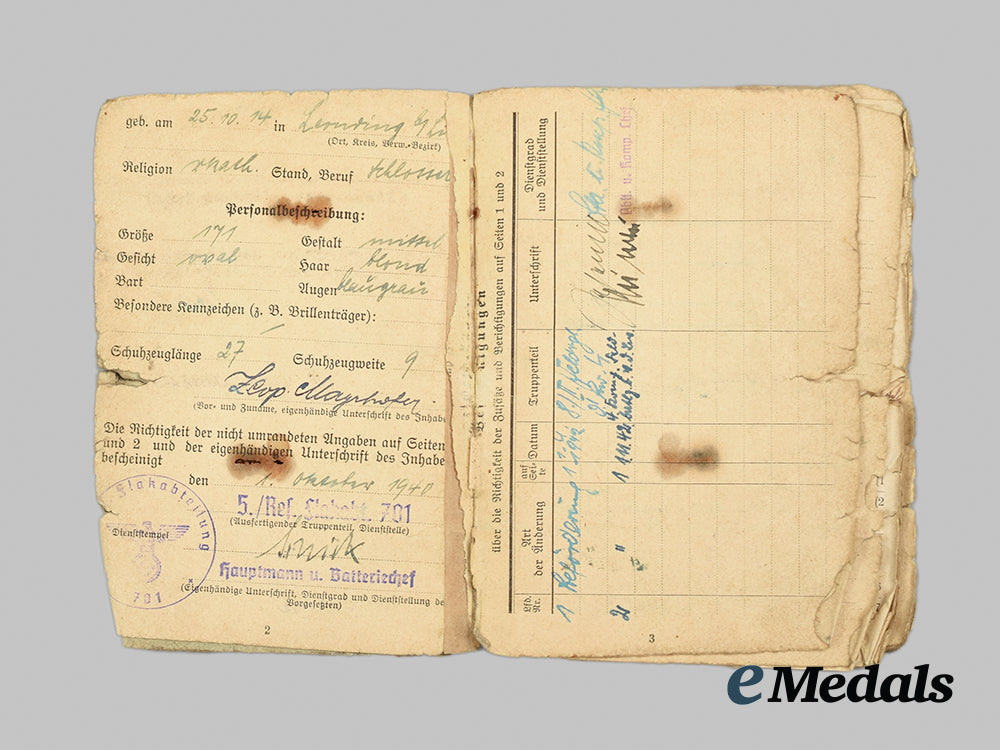 geb. am 25.10.14 in
(Ort, Kreis, Verw.-Bezirk)
Religion rkath. Stand, Beruf Schlosser
Personalbeschreibung:
Größe 171 Gestalt mittel
Gesicht oval Haar blond
Bart Augen blaugrau
Besondere Kennzeichen (z. B. Brillenträger):
Schuhzeuglänge 27 Schuhzeugweite 9
Leop. Mayrhofer
(Vor- und Zuname, eigenhändige Unterschrift des Inhabe
Die Richtigkeit der nicht umrandeten Angaben auf Seiten
und 2 und der eigenhändigen Unterschrift des Inhabe
bescheinigt
den 1. Oktober 1940
5./Res. Flakabt. 701
(Ausfertigender Truppenteil, Dienststelle)
Flakabteilung
701
Dienststempel
Hauptmann u. Batteriechef
(Eigenhändige Unterschrift, Dienstgrad und Dienststellung de
Vorgesetzten)
2
über die Richtigkeit der Zusätze und Berichtigungen auf Seiten 1 und 2
Lfd. Nr.
Art der Änderung
auf Sei-te
Datum
Truppenteil
Unterschrift
Dienstgrad und Dienststellung
1 Beförderung 1
2 " 1 1.4.42
u. Komp.
3
2
eMedals